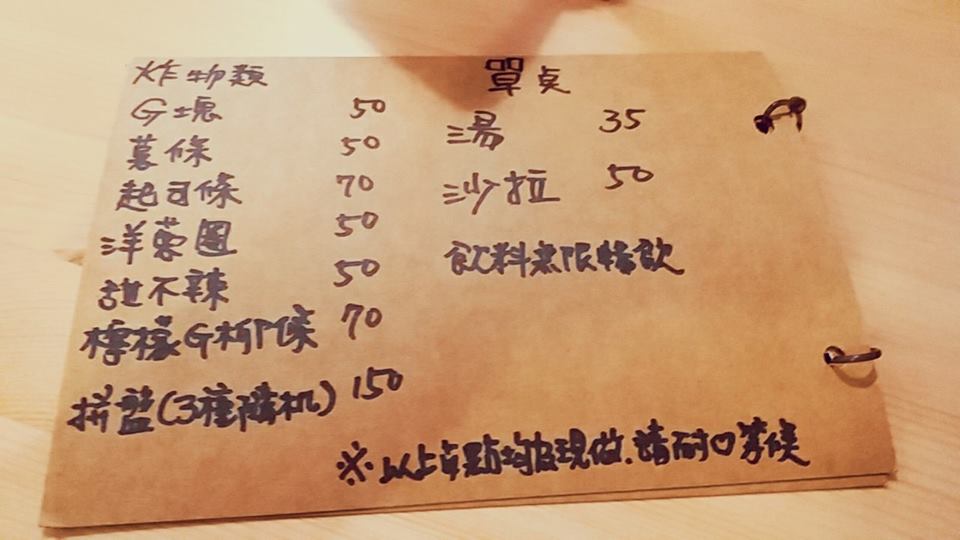 炸物類
G塊 50
薯條 50
起司條 70
洋蔥圈 50
甜不辣 50
檸檬G柳條 70
拼盤(3種隨机) 150
單点
湯 35
沙拉 50
飲料無限暢飲
※以上餐點均為現做.請耐♡等候